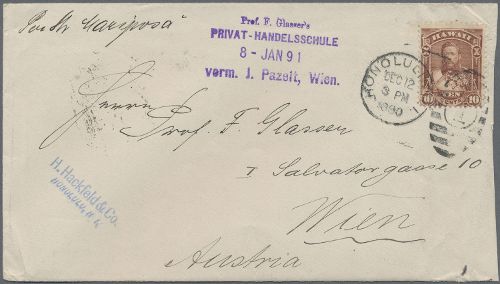 Per Str "Mariposa"
Prof. F. Glasser's
PRIVAT-HANDELSSCHULE
8 - JAN 91
verm. J. Pazelt, Wien.
HAWAII
10 10
HONOLULU
DEC 12
3 PM
1890
Herrn
Prof. F. Glasser
I Salvatorgasse 10
Wien
Austria
H. Hackfeld & Co.
HONOLULU, H. I.